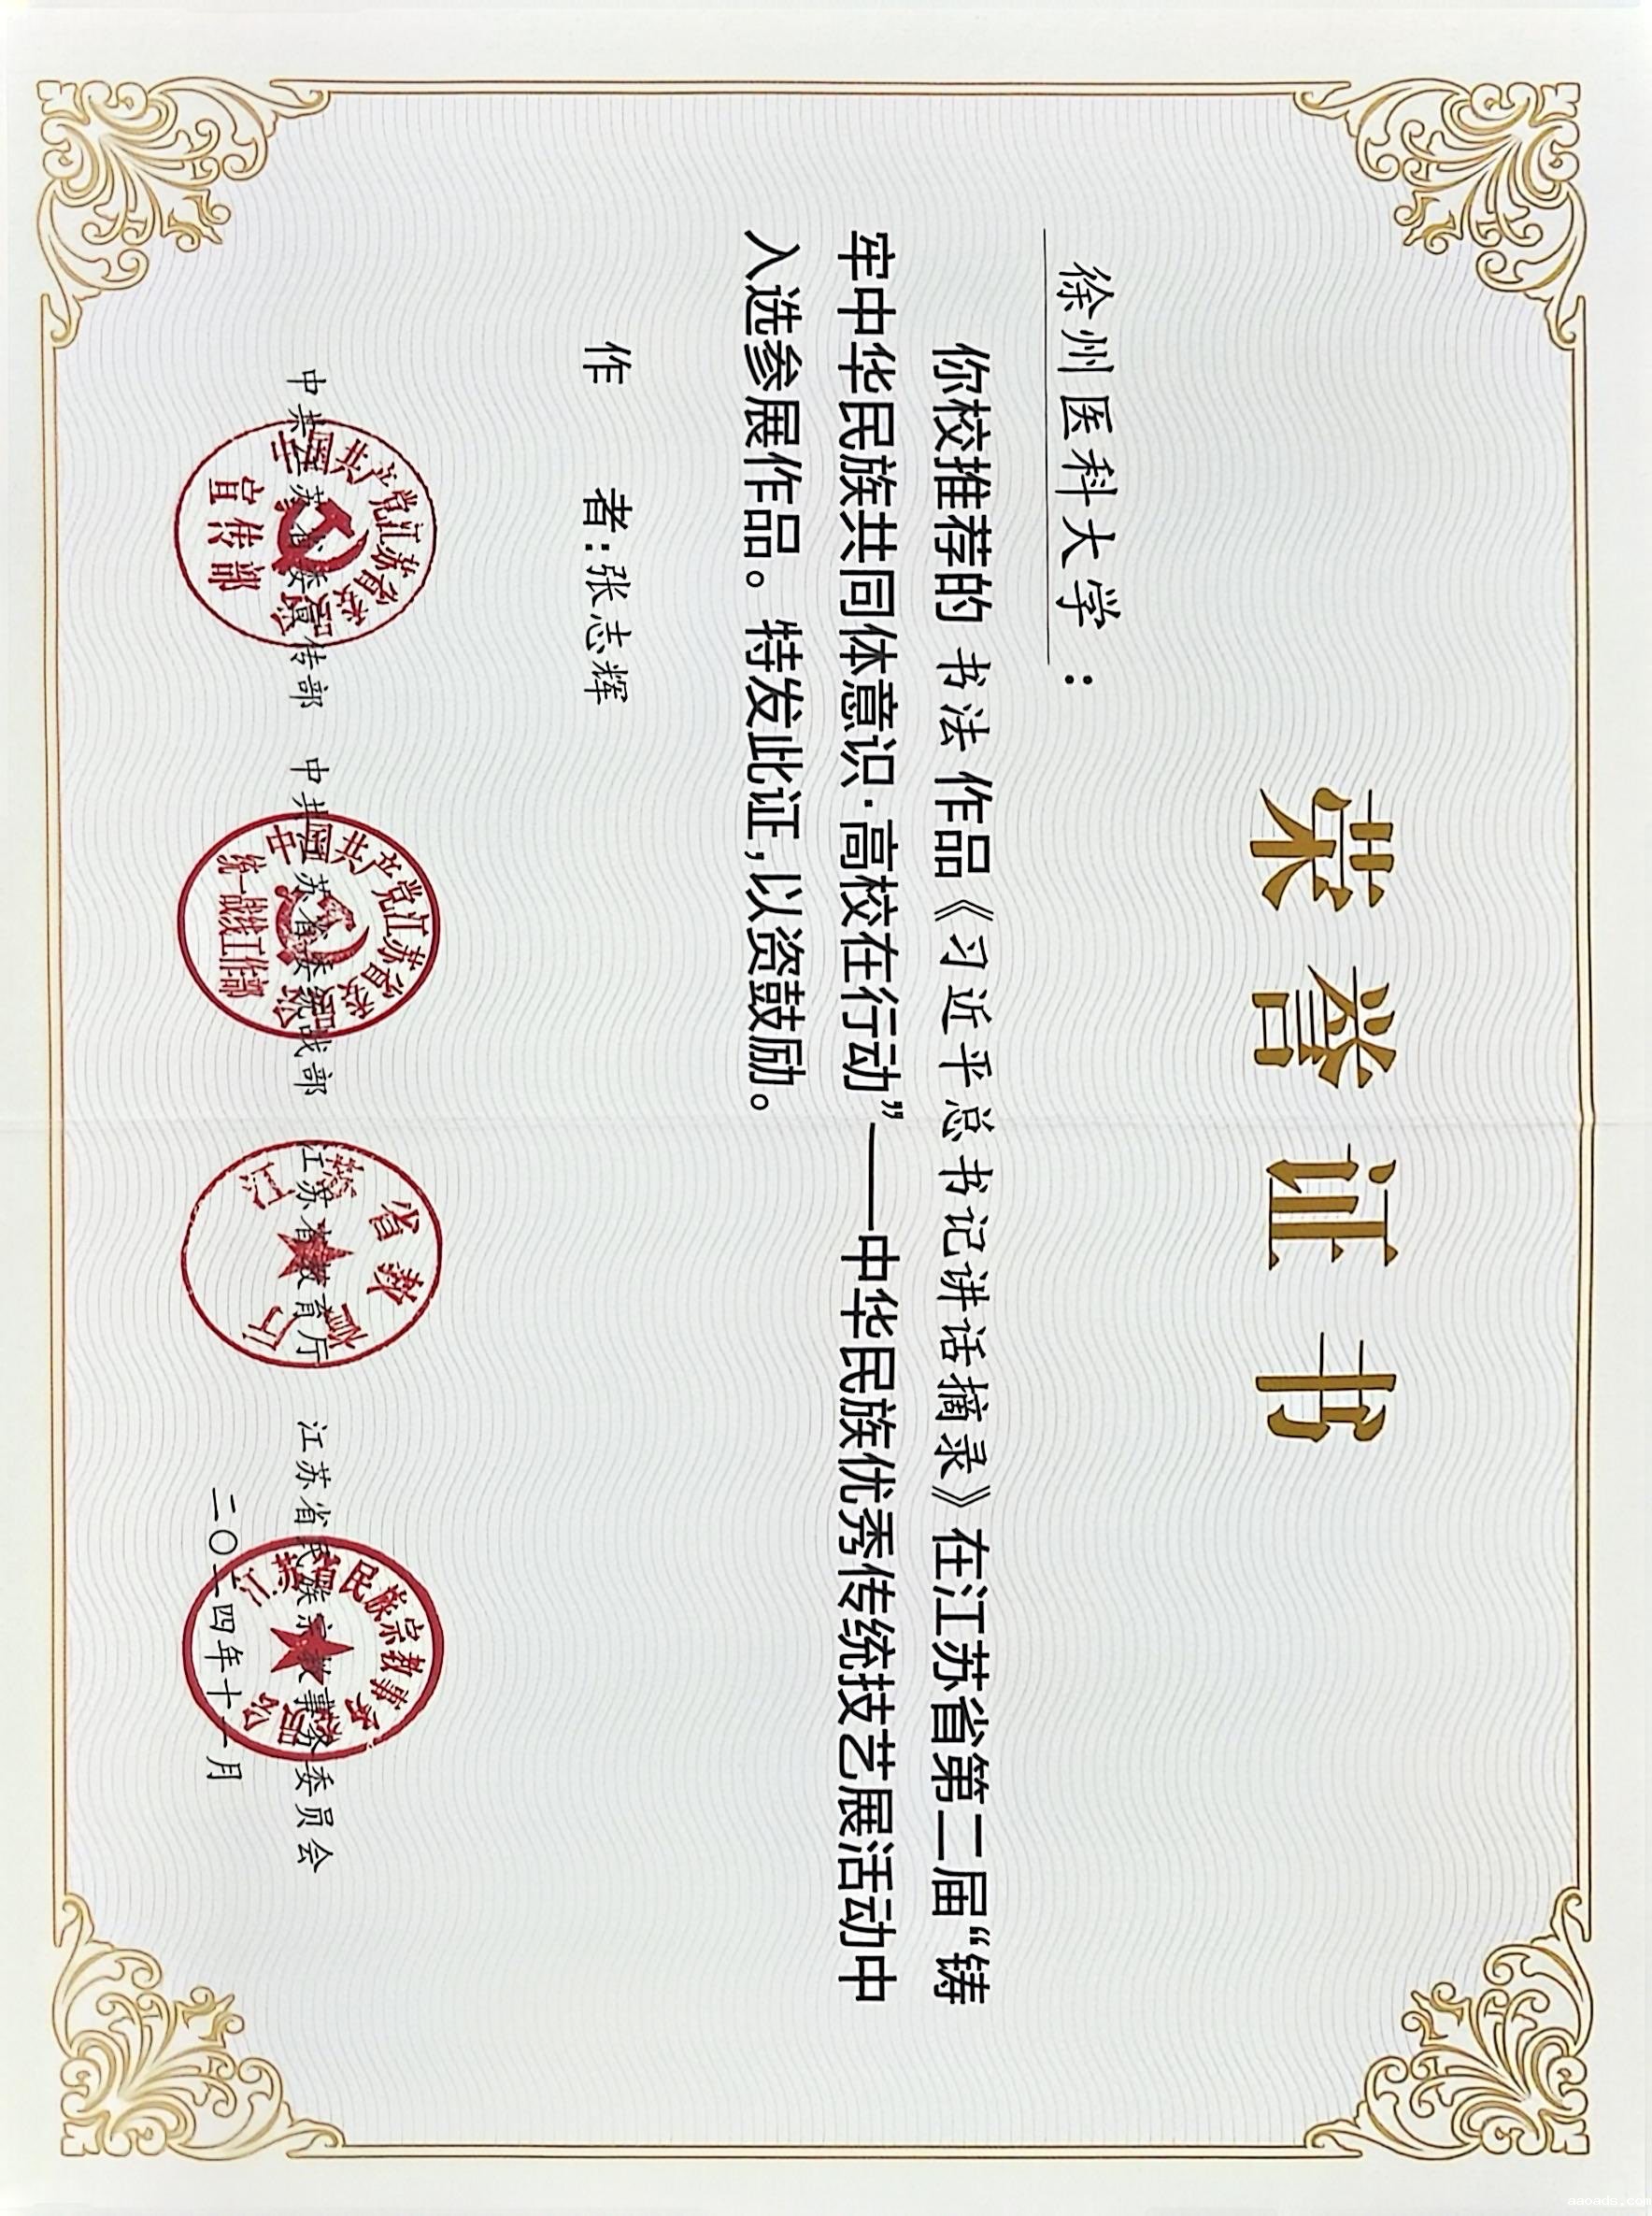 荣誉证书
徐州医科大学：
你校推荐的 书法 作品《习近平总书记讲话摘录》在江苏省第二届“铸
牢中华民族共同体意识·高校在行动”——中华民族优秀传统技艺展活动中
入选参展作品。特发此证，以资鼓励。
作　者：张志辉
中共江苏省委宣传部　中共江苏省委统战部　江苏省教育厅　江苏省民族宗教事务委员会
中国共产党江苏省委员会
宣传部
中国共产党江苏省委员会
统一战线工作部
江苏省教育厅
江苏省民族宗教事务委员会
二〇二四年十一月
aaoads.com